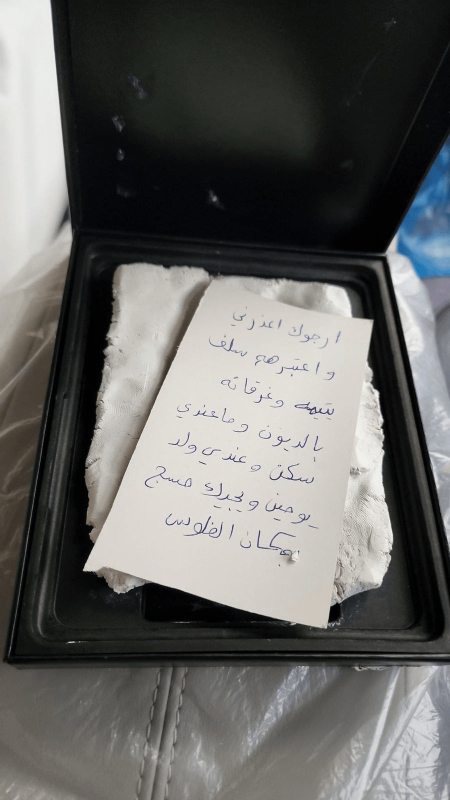 ارجوك اعذرني
واعتبرهم سلف
يتيمه وغرقانه
بالديون وماعندي
سكن وعندي ولد
يومين ويجيك مسج
بمكان الفلوس